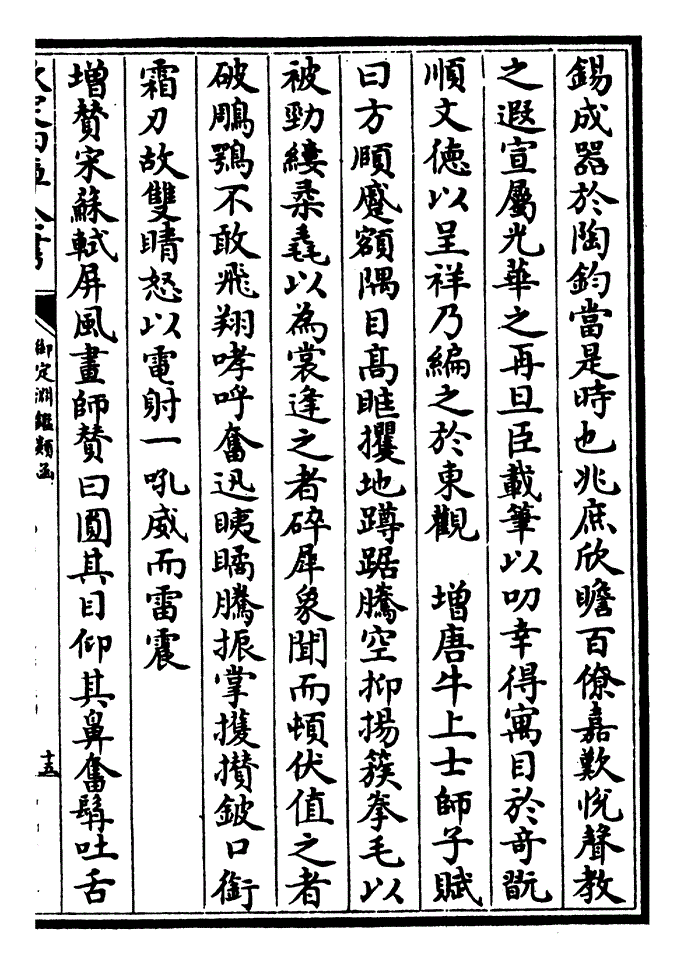 錫成器於陶鈞當是時也兆庶欣瞻百僚嘉歎悅聲教
之遐宣屬光華之再旦臣載筆以叨幸得寓目於奇翫
順文德以呈祥乃編之於東觀　增唐牛上士師子賦
曰方頤蹙額隅目高眶攫地蹲踞騰空抑揚簇拳毛以
被勁縷柔毳以為裳逢之者碎犀象聞而頓伏值之者
破鵰鶚不敢飛翔哮呼奮迅眱𥉻騰振掌擭攢鈹口銜
霜刃故雙睛怒以電射一吼威而雷震
增贊宋蘇軾屏風畫師贊曰圓其目仰其鼻奮髯吐舌
御定淵鑑類函
十五